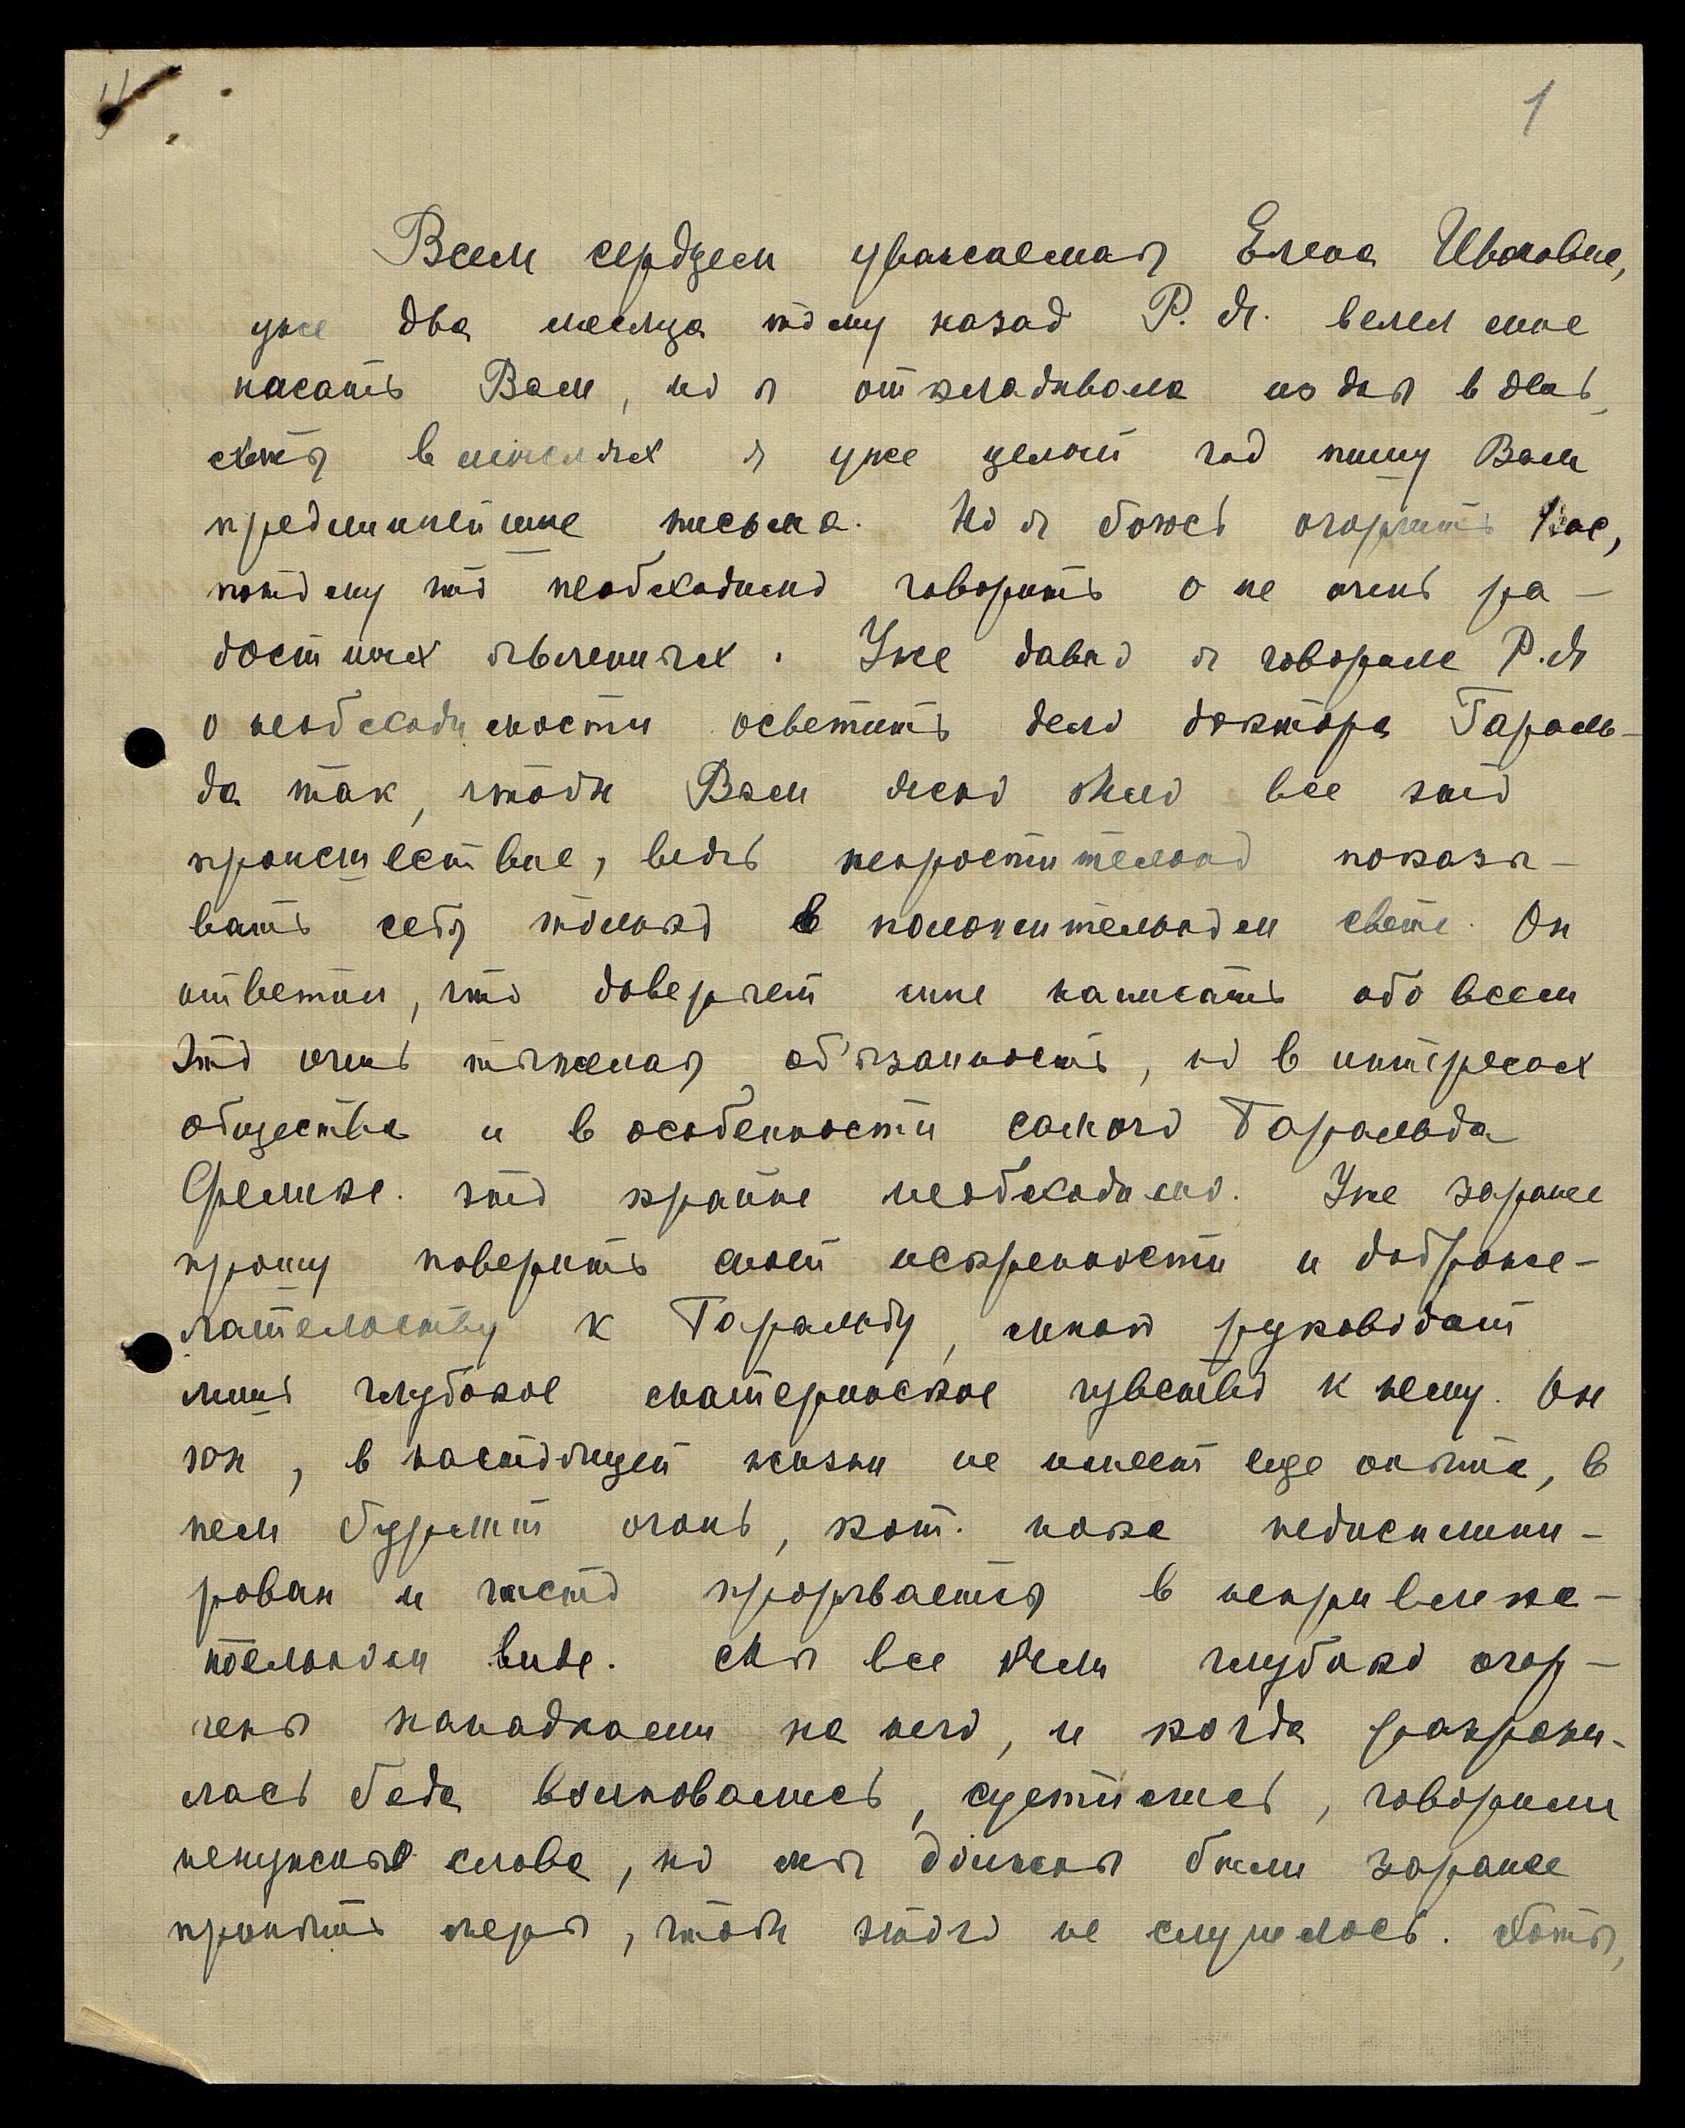 1
Всем сердцем уважаемая Елена Ивановна,
уже два месяца тому назад Р. Я. велел мне
писать Вам, но я откладывала изо дня в день,
хотя в мыслях я уже целый год пишу Вам
предлиннейшие письма. Но я боюсь огорчить Вас,
потому что необходимо говорить о не очень ра-
достных явлениях. Уже давно я говорила Р. Я
о необходимости осветить дело доктора Гараль-
да так, чтобы Вам ясно было все это
происшествие, ведь непростительно показы-
вать себя только в положительном свете. Он
ответил, что доверяет мне написать обо всем
Это очень тяжелая об'язанность, но в интересах
общества и в особенности самого Гаральда
Феликс. это крайне необходимо. Уже заранее
прошу поверить моей искренности и доброже-
лательству к Гаральду, мной руководит
лишь глубокое материнское чувство к нему. Он
юн, в настоящей жизни не имеет еще опыта, в
нем бурлит огонь, кот. пока недисципли-
рован и часто прорывается в непривлека-
тельном виде. Мы все были глубоко огор-
чены нападками на него, и когда разрази-
лась беда волновались, суетились, говорили
ненужные слова, но мы должны были заранее
принять меры, чтобы этого не случилось. Хотя,